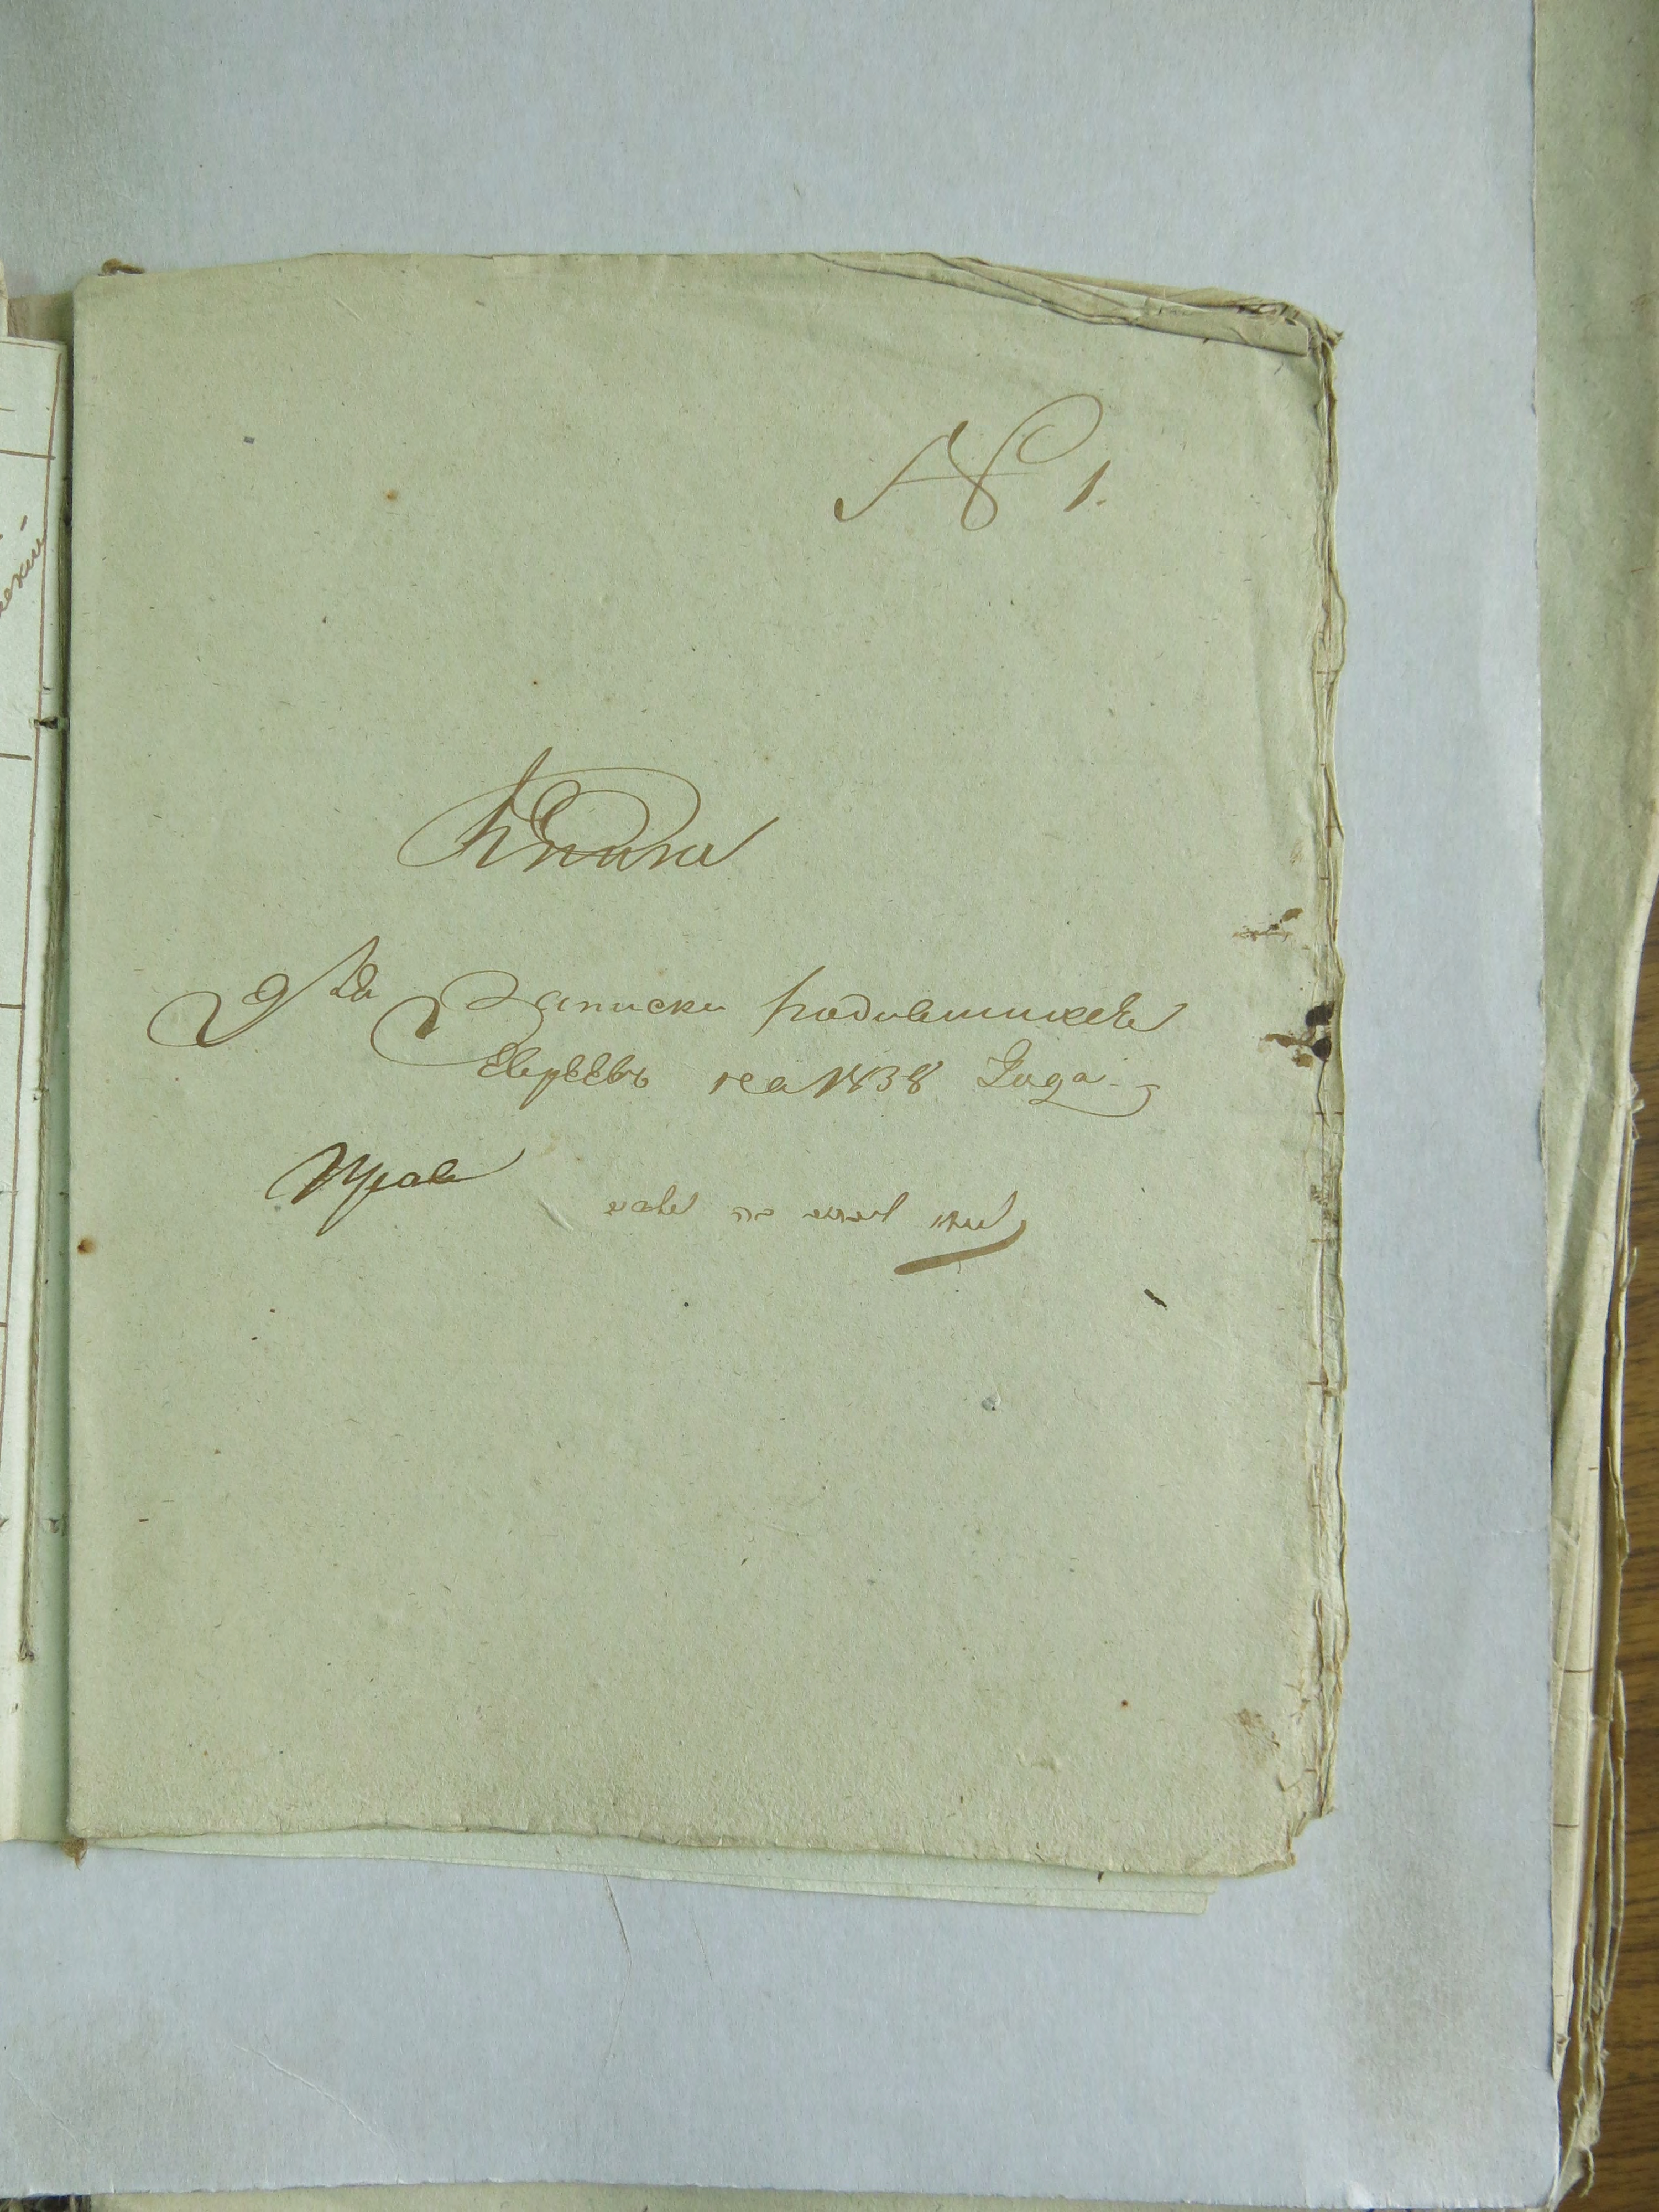 № 1.
Книга
Для Записки родившихся
Евреевъ на 1838 Года